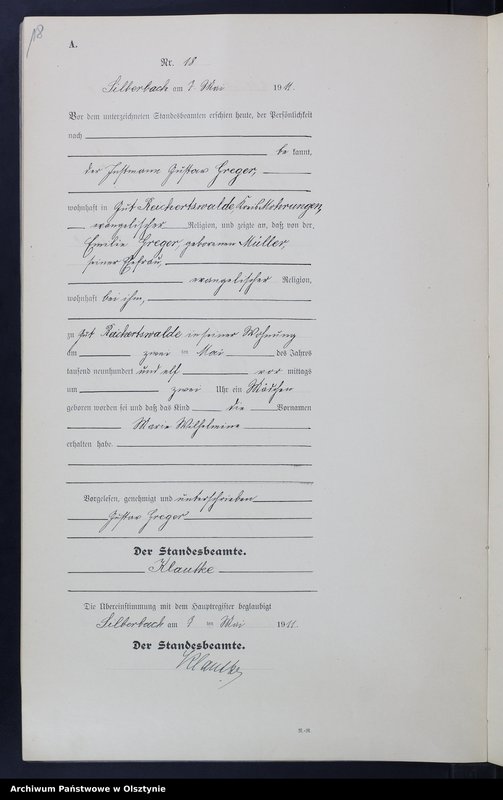 18
A.
Nr. 18
Silberbach am 3 Mai 1911.
Vor dem unterzeichneten Standesbeamten erschien heute, der Persönlichkeit
nach
be kannt,
der Instmann Gustav Greger,
wohnhaft in Gut Reichertswalde Kreis Mohrungen,
evangelischer Religion, und zeigte an, daß von der,
Emilie Greger, geborenen Müller,
seiner Ehefrau,
evangelischer Religion,
wohnhaft bei ihm,
zu Gut Reichertswalde in seiner Wohnung
am zwei ten Mai des Jahres
tausend neunhundert und elf vor mittags
um zwei Uhr ein Mädchen
geboren worden sei und daß das Kind die Vornamen
Marie Wilhelmine
erhalten habe.
Vorgelesen, genehmigt und unterschrieben
Gustav Greger
Der Standesbeamte.
Klautke
Die Übereinstimmung mit dem Hauptregister beglaubigt
Silberbach am 3 ten Mai 1911.
Der Standesbeamte.
Klautke
Archiwum Państwowe w Olsztynie